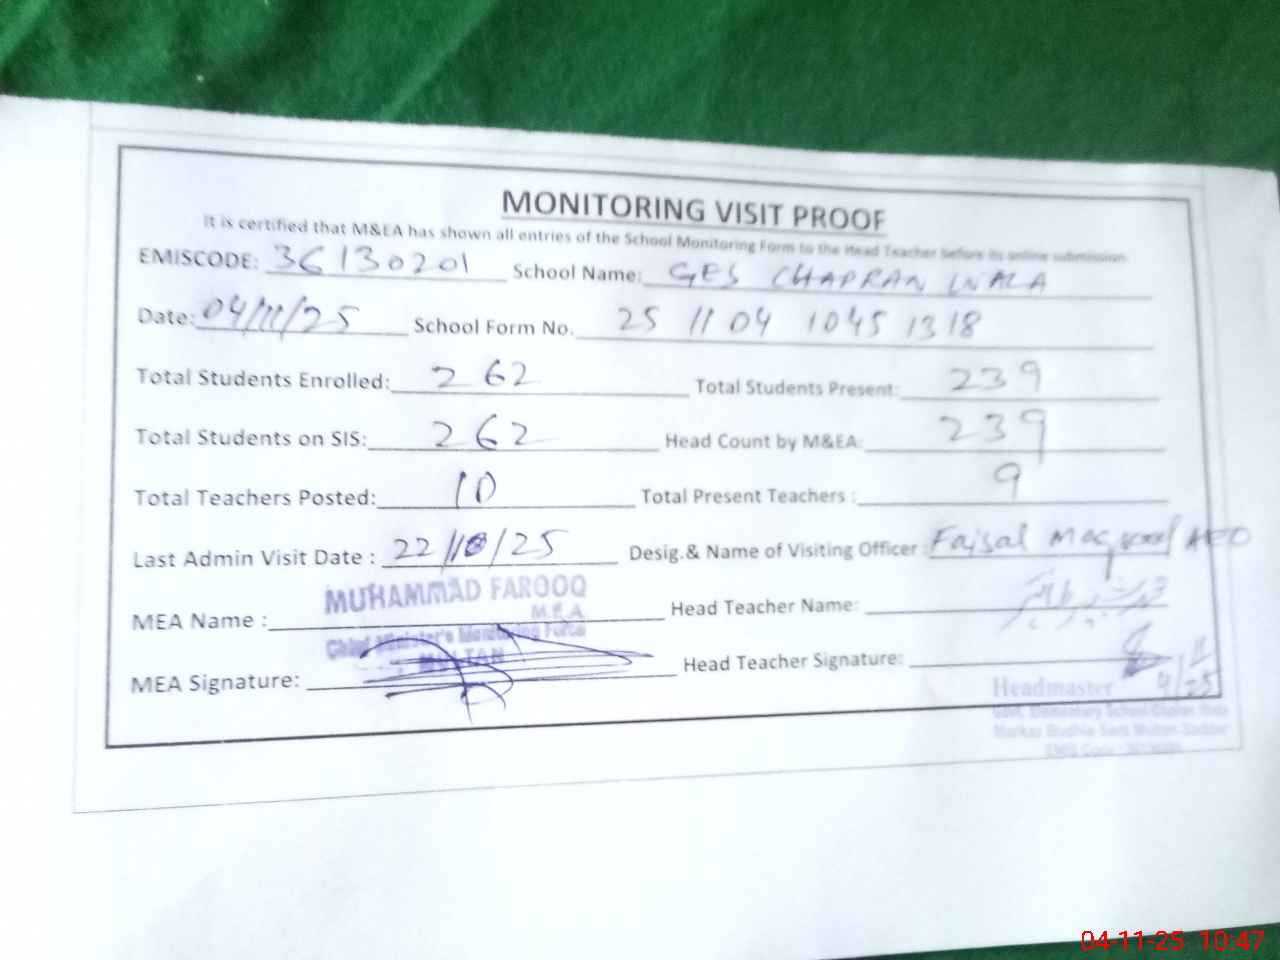 MONITORING VISIT PROOF
It is certified that M&EA has shown all entries of the School Monitoring Form to the Head Teacher before its online submission.
EMISCODE: 36130201 School Name: GES CHAPRAN WALA
Date: 04/11/25 School Form No. 25 11 04 1045 1318
Total Students Enrolled: 262 Total Students Present: 239
Total Students on SIS: 262 Head Count by M&EA: 239
Total Teachers Posted: 10 Total Present Teachers : 9
Last Admin Visit Date : 22/10/25 Desig.& Name of Visiting Officer : Faisal AEO
MUHAMMAD FAROOQ
MEA Name : M.E.A Head Teacher Name:
Chief Minister's Monitoring Force
MULTAN
MEA Signature: Head Teacher Signature:
4/11/25
Headmaster
Govt. Elementary School
04-11-25 10:47